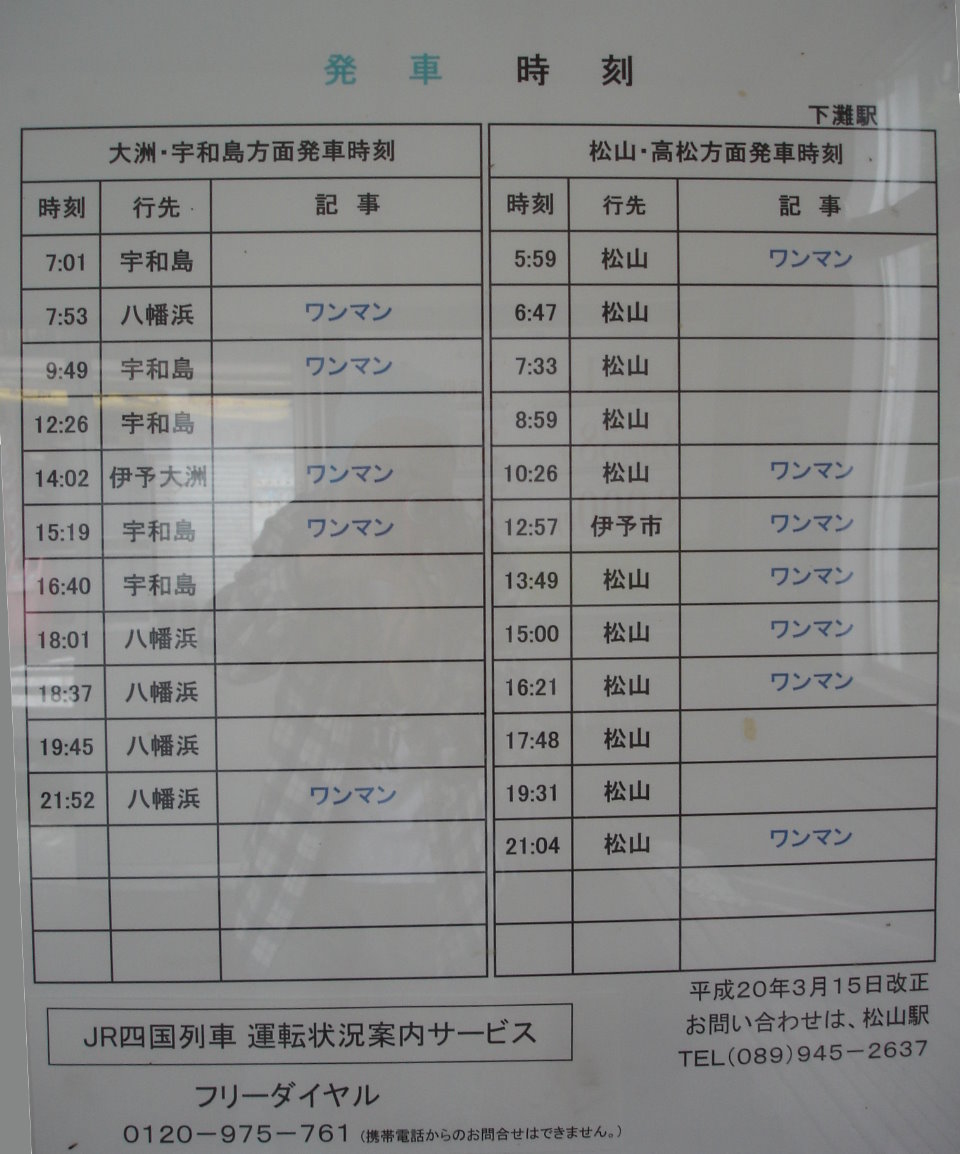 発車 時刻
下灘駅
大洲・宇和島方面発車時刻
時刻 行先 記事
7:01 宇和島
7:53 八幡浜 ワンマン
9:49 宇和島 ワンマン
12:26 宇和島
14:02 伊予大洲 ワンマン
15:19 宇和島 ワンマン
16:40 宇和島
18:01 八幡浜
18:37 八幡浜
19:45 八幡浜
21:52 八幡浜 ワンマン
松山・高松方面発車時刻
時刻 行先 記事
5:59 松山 ワンマン
6:47 松山
7:33 松山
8:59 松山
10:26 松山 ワンマン
12:57 伊予市 ワンマン
13:49 松山 ワンマン
15:00 松山 ワンマン
16:21 松山 ワンマン
17:48 松山
19:31 松山
21:04 松山 ワンマン
平成20年3月15日改正
お問い合わせは、松山駅
TEL(089)945-2637
JR四国列車 運転状況案内サービス
フリーダイヤル
0120-975-761 (携帯電話からのお問合せはできません。)